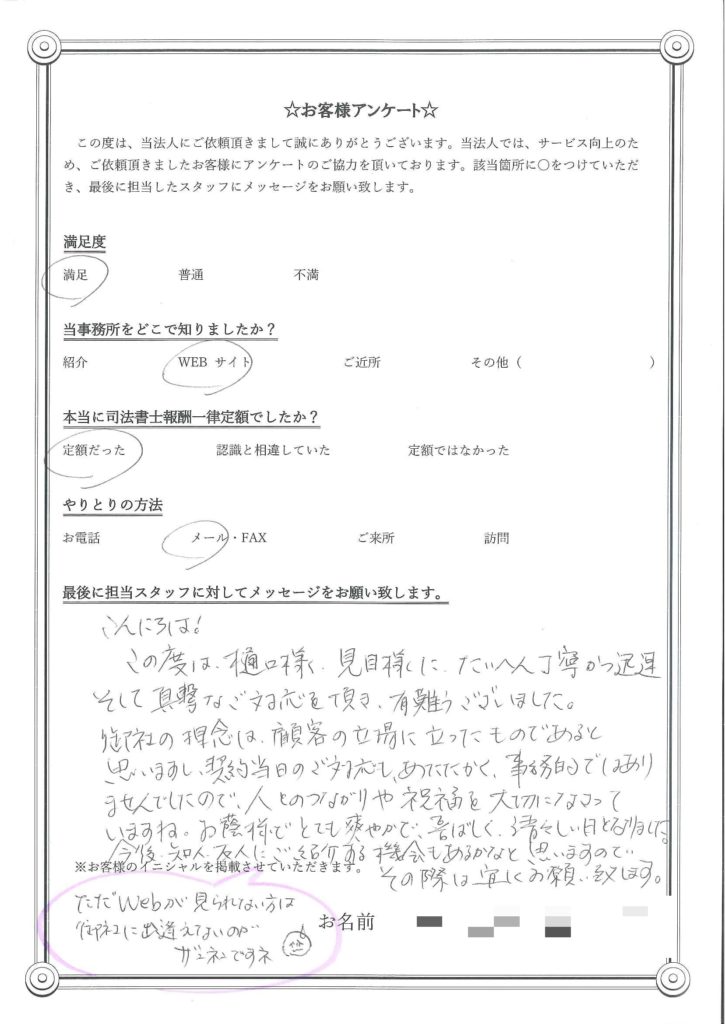 ☆お客様アンケート☆
この度は、当法人にご依頼頂きまして誠にありがとうございます。当法人では、サービス向上のた
め、ご依頼頂きましたお客様にアンケートのご協力を頂いております。該当箇所に〇をつけていただ
き、最後に担当したスタッフにメッセージをお願い致します。
満足度
満足 普通 不満
当事務所をどこで知りましたか？
紹介 WEB サイト ご近所 その他（ ）
本当に司法書士報酬一律定額でしたか？
定額だった 認識と相違していた 定額ではなかった
やりとりの方法
お電話 メール・FAX ご来所 訪問
最後に担当スタッフに対してメッセージをお願い致します。
こんにちは!
この度は、樋口様、見目様に、たいへん丁寧かつ迅速
そして真摯なご対応を頂き、有難うございました。
御社の理念は、顧客の立場に立ったものであると
思いますし、契約当日のご対応も、あたたかく、事務的ではあり
ませんでしたので、人とのつながりや祝福を大切になさって
いますね。お蔭様でとても爽やかで、喜ばしく、清々しい日となりました。
今後、知人・友人にご紹介する機会もあるかなと思いますので
※お客様のイニシャルを掲載させていただきます。
その際は宜しくお願い致します。
ただWebが見られない方は
御社に出逢えないのが
ザンネンですネ
お名前